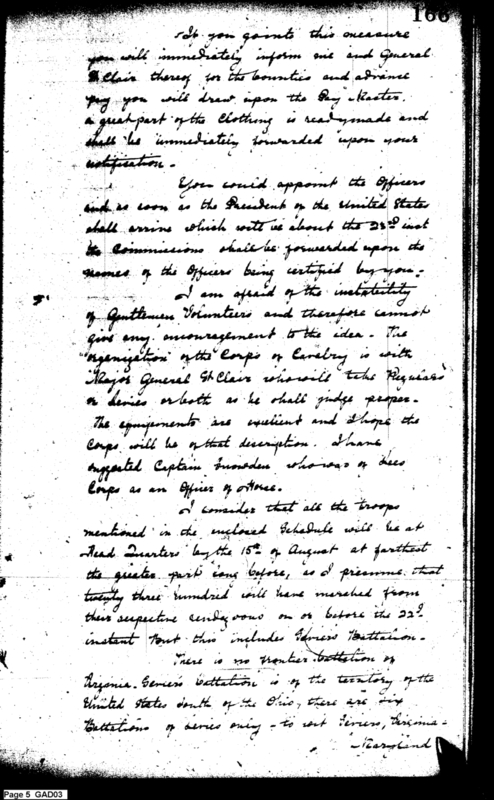 166
If you go into this measure
you will immediately inform me and General
St Clair thereof for the bounties and advance
pay you will draw upon the Pay Master.
a great part of the Clothing is readymade and
shall be immediately forwarded upon your
notification.
You could appoint the Officers
and as soon as the President of the United States
shall arrive which will be about the 28th inst
the Commissions shall be forwarded upon the
names of the Officers being certified by you.
I am afraid of the instability
of Gentlemen Volunteers and therefore cannot
give any encouragement to the idea. The
organization of the Corps of Cavalry is with
Major General St Clair who will take Regulars
or Levies or both as he shall judge proper.
The equipments are excellent and I hope the
Corps will be of that description. I have
suggested Captain Snowden who was of Lees
Corps as an Officer of Horse.
I consider that all the troops
mentioned in the enclosed Schedule will be at
Head Quarters by the 15th of August at farthest
the greater part long before, as I presume that
twenty three hundred will have marched from
their respective rendezvous on or before the 22d
instant but this includes Seviers Battalion.
There is no frontier battalion of
Virginia. Seviers battalion is of the territory of the
United States South of the Ohio, there are six
Battalions of Levies only - to wit Seviers, Virginia -
Maryland
Page 5 GAD03